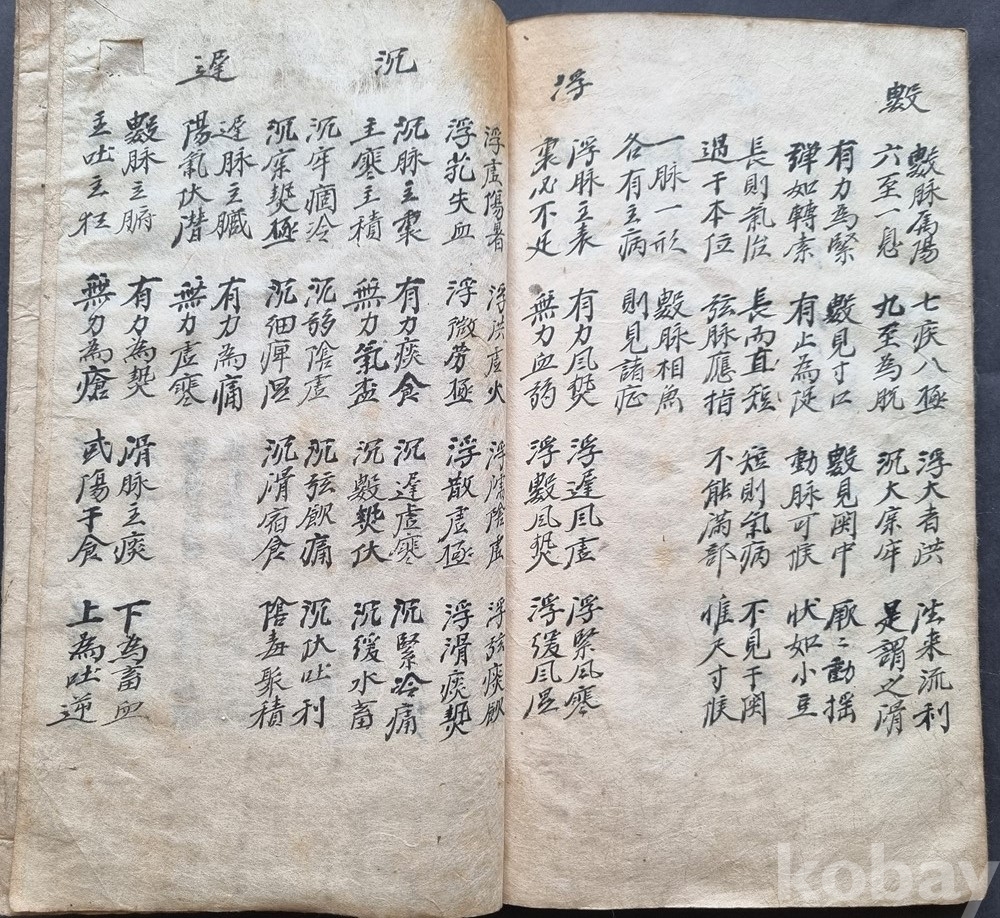 數
數脉属陽 七疾八極 浮大者洪 徃来流利
六至一息 九至為脫 沉大宲牢 是謂之滑
有力為緊 數見寸口 數見関中 厥〻動揺
弹如轉索 有止為促 動脉可候 状如小豆
長則氣治 長而直短 短則氣病 不見于関
過于本位 弦脉應指 不能滿部 惟尺寸候
一脉一形 數脉相兼
各有主病 則見諸症
浮
浮脉主表 有力風熱 浮遲風虛 浮緊風寒
裏必不足 無力血弱 浮數風熱 浮缓風湿
浮虛傷暑 浮洪虛火 浮濡陰虛 浮弦痰飲
浮芤失血 浮微劳極 浮散虛極 浮滑痰熱
沉
沉脉主裏 有力痰食 沉遲虛寒 沉緊冷痛
主寒主積 無力氣盃 沉數熱伏 沉缓水畜
沉牢痼冷 沉弱陰虛 沉弦飲痛 沉伏吐利
沉宲熱極 沉細痺湿 沉滑宿食 陰毒聚積
遲
遲脉主臓 有力為痛
陽氣伏潜 無力虛寒
數脉主腑 有力為熱 滑脉主痰 下為畜血
主吐主狂 無力為瘡 或傷于食 上為吐逆
kobay